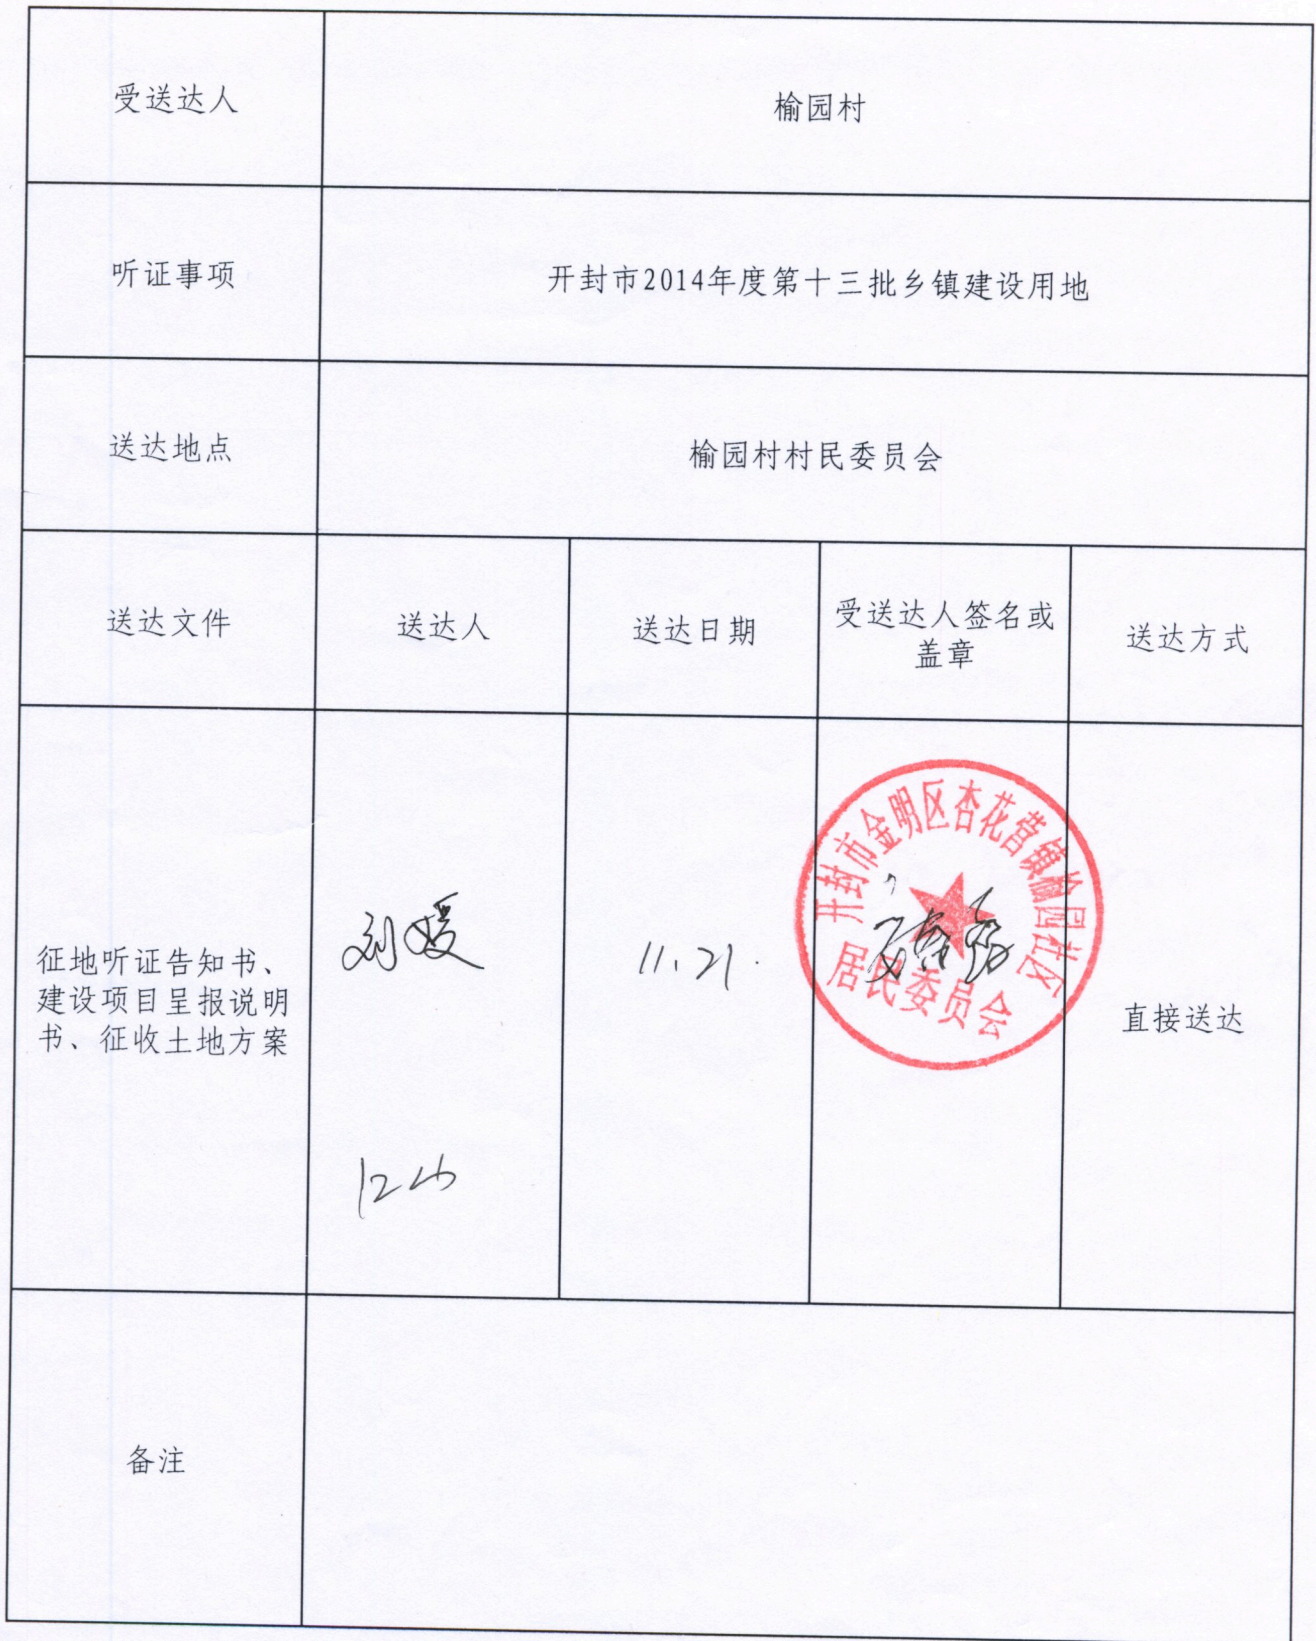 受送达人
榆园村
听证事项
开封市2014年度第十三批乡镇建设用地
送达地点
榆园村村民委员会
送达文件
送达人
送达日期
受送达人签名或
盖章
送达方式
征地听证告知书、
建设项目呈报说明
书、征收土地方案
刘媛
11.21.
开封市金明区杏花营镇榆园社区
居民委员会
直接送达
备注